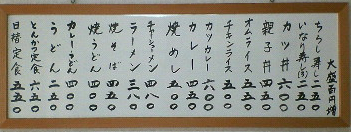 大盛百円増
ちらし寿し 二五〇
いなり寿し(3) 二〇〇
カツ丼 六〇〇
親子丼 四五〇
オムライス 五五〇
チキンライス 五〇〇
カツカレー 六〇〇
カレー 四五〇
焼めし 五〇〇
チャーシューメン 四八〇
ラーメン 三八〇
焼そば 四五〇
焼うどん 四五〇
カレーうどん 四五〇
うどん 二五〇
とんかつ定食 六五〇
日替定食 五五〇